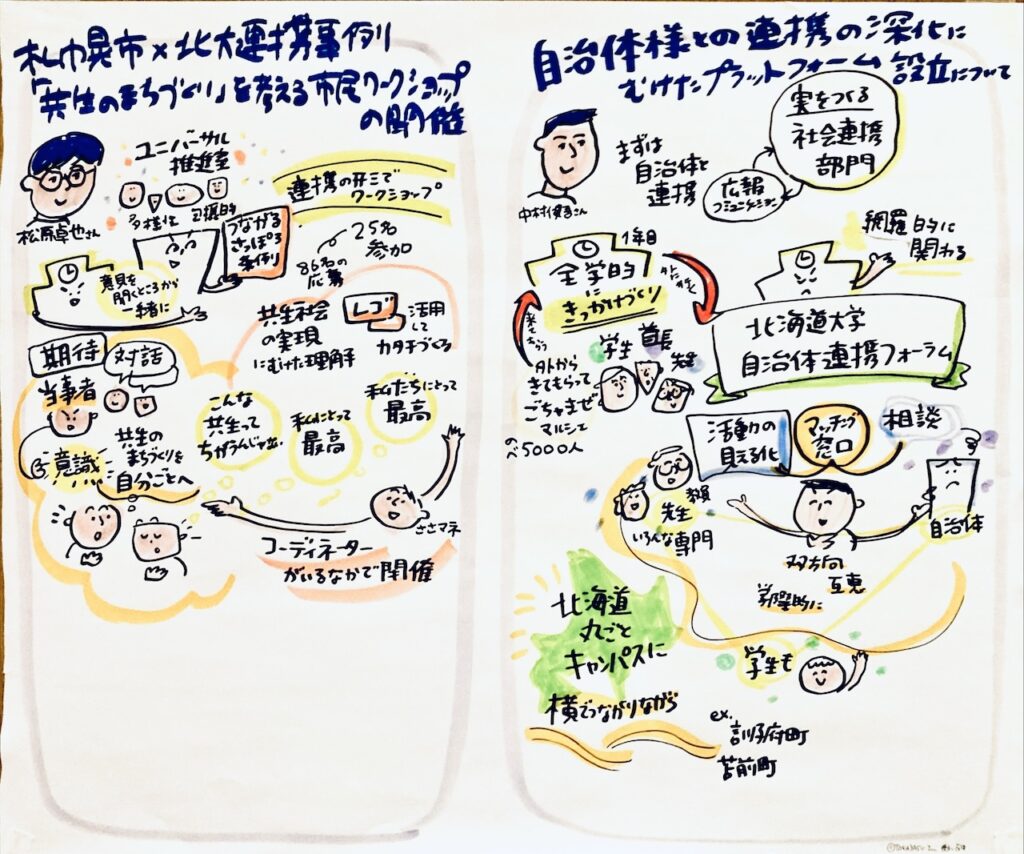 札幌市×北大連携事例
「共生のまちづくり」を考える市民ワークショップ
の開催
ユニバーサル
推進室
多様性
包摂的
松原卓也さん
連携の形でワークショップ
つながる
さっぽろ
条例
25%
参加
86名の
応募
意見を
聞くところから
一緒に
期待
対話
当事者
意識
共生の
まちづくりを
自分ごとへ
共生社会
の実現
にむけた理解
レゴ
活用
して
カタチづくる
こんな
共生って
ちがうんじゃね
私にとって
最高
私たちにとって
最高
ささマネ
コーディネーター
がいるなかで開催
自治体様との連携の深化に
むけたプラットフォーム設立について
まずは
自治体と
連携
実をつくる
社会連携
部門
広報
コミュニケーション
網羅的に
関わる
1年目
全学的
に
きっかけづくり
来てもらう
外から
きてもらって
ごちゃまぜ
マルシェ
のべ5000人
学生
首長
先生
北海道大学
自治体連携フォーラム
活動の
見える化
マッチング
窓口
相談
自治体
先生
いろんな専門
双方向
互恵
学際的に
学生も
北海道
丸ごと
キャンパスに
横でつながりながら
ex.
訓子府町
苫前町